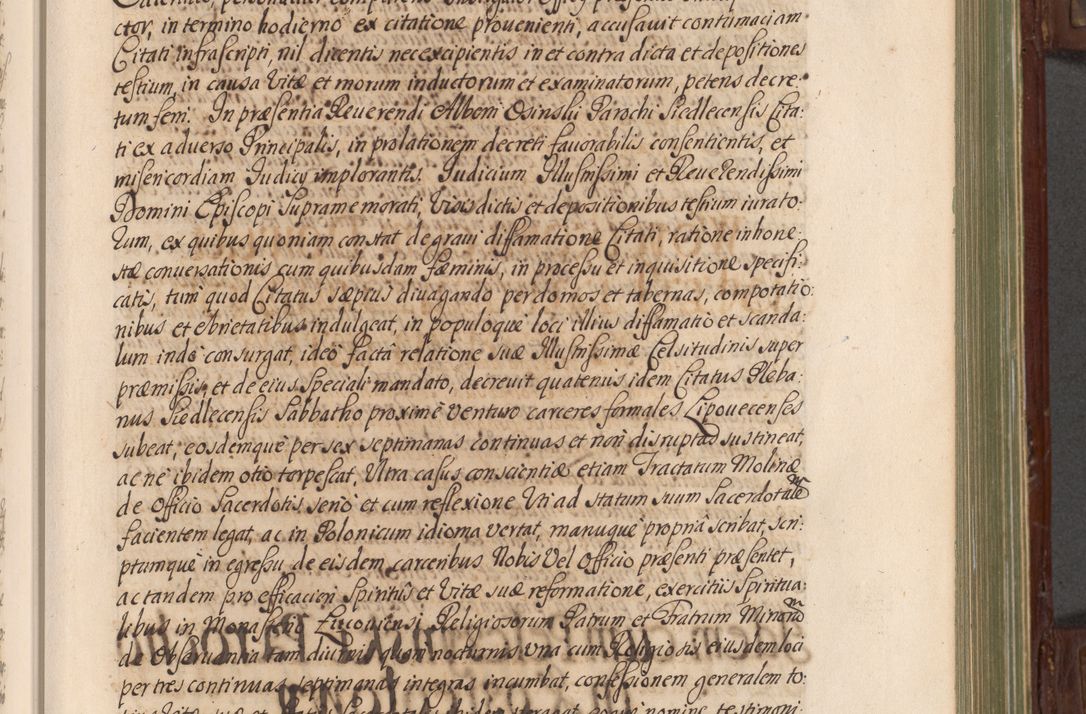 ctor, in termino hodierno ex citatione proueniènti, accusauit contumaciam
Citati infrascripti, nil dicentis nec excipientis in et contra dicta et depositiones
testium, in causa Vitæ et morum inductorum et examinatorum, petens decre:
tum feri. In præsentia Reuerendi Alberti Osinski Parochi Siedlecensis Cita:
ti ex aduerso Principalis, in prolationem decreti fauorabilis consentientis, et
misericordiam Judicij implorantis. Judicium Illustrissimi et Reuerendissimi
Domini Episcopi supramemorati, Visis dictis et depositionibus testium iurato:
rum, ex quibus quoniam constat de graui diffamatione Citati, ratione inhone:
stæ conuersationis cum quibusdam fæminis, in processu et inquisitione specifi:
catis, tum quod Citatus sæpius diuagando per domos et tabernas, compotatio:
nibus et ebrietatibus indulgeat, in populoque loci illius diffamatio et scanda:
lum inde consurgat, ideo facta relatione suæ Illustrissimæ Celsitudinis super
præmissis, et de eius speciali mandato, decreuit quatenus idem Citatus Pleba:
nus Siedlecensis Sabbatho proxime venturo carceres formales Lipouecenses
subeat, eosdemque per sex septimanas continuas et non disruptas sustineat,
ac ne ibidem otio torpescat, Ultra casus conscientiæ etiam Tractatum Molinæ
de Officio Sacerdotis serio et cum reflexione Uti ad statum suum Sacerdotalem
facientem legat, ac in Polonicum idioma vertat, manuque propria scribat, scri:
ptumque in egressu de eisdem carceribus Nobis Vel Officio præsenti præsentet,
ac tandem pro efficaciori Spiritus et Vitæ suæ reformatione, exercitiis Spiritua:
libus in Monasterio Religiosorum Patrum et Fratrum Minorum
de Obseruantia tam diurnis quam nocturnis una cum Religiosis eiusdem loci
per tres continuas septimanas integras incumbat, confessionem generalem to: